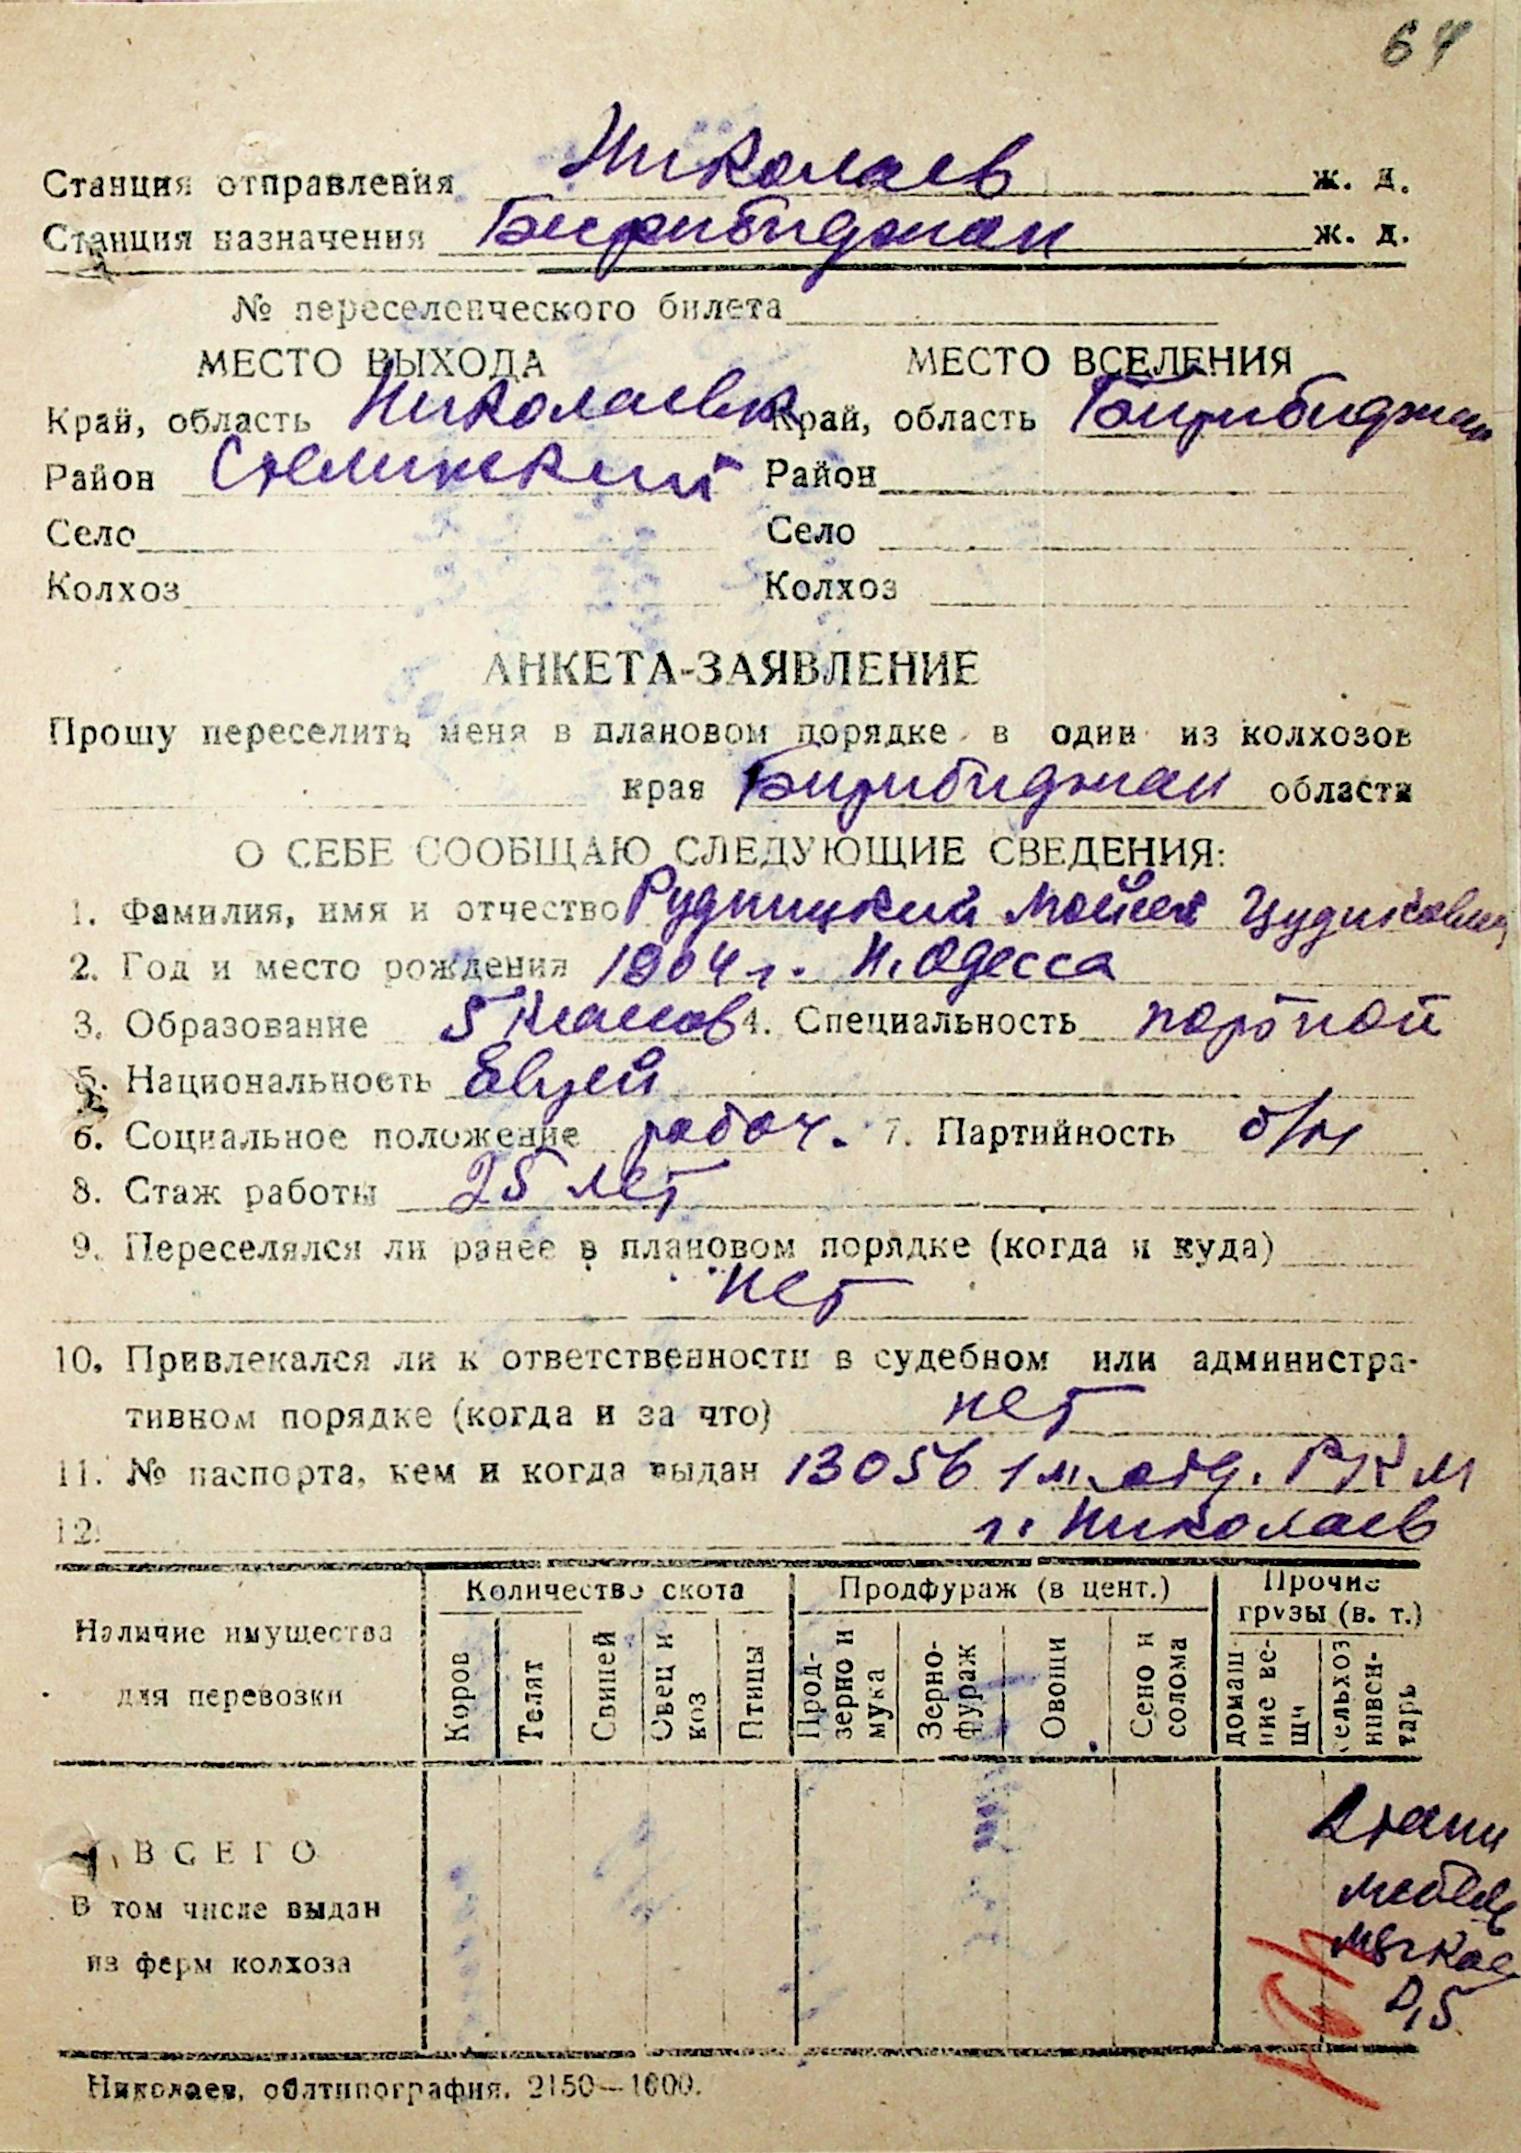 64
Станция отправления Николаев ж. д.
Станция назначения Биробиджан ж. д.
№ переселенческого билета
МЕСТО ВЫХОДА МЕСТО ВСЕЛЕНИЯ
Край, область Николаевск Край, область Биробиджан
Район Сталинский Район
Село Село
Колхоз Колхоз
АНКЕТА-ЗАЯВЛЕНИЕ
Прошу переселить меня в плановом порядке в один из колхозов
края Биробиджан области
О СЕБЕ СООБЩАЮ СЛЕДУЮЩИЕ СВЕДЕНИЯ:
1. Фамилия, имя и отчество Рудницкий Мойсей
2. Год и место рождения 1904 г. Н. Одесса
3. Образование 5 классов 4. Специальность портной
5. Национальность Еврей
6. Социальное положение рабоч. 7. Партийность б/п
8. Стаж работы 25 лет
9. Переселялся ли ранее в плановом порядке (когда и куда)
нет
10. Привлекался ли к ответственности в судебном или администра-
тивном порядке (когда и за что) нет
11. № паспорта, кем и когда выдан 13056 1 м. отд. РКМ
12. г. Николаев
Наличие имущества для перевозки
Количество скота
Продфураж (в цент.)
Прочие грузы (в. т.)
Коров
Телят
Свиней
Овец и коз
Птицы
Прод-зерно и мука
Зерно-фураж
Овощи
Сено и солома
домаш-ние ве-щи
сельхоз инвен-тарь
ВСЕГО
В том числе выдан
из ферм колхоза
мебель
мягкая
0,5
Николаев, облтипография. 2150—1000.